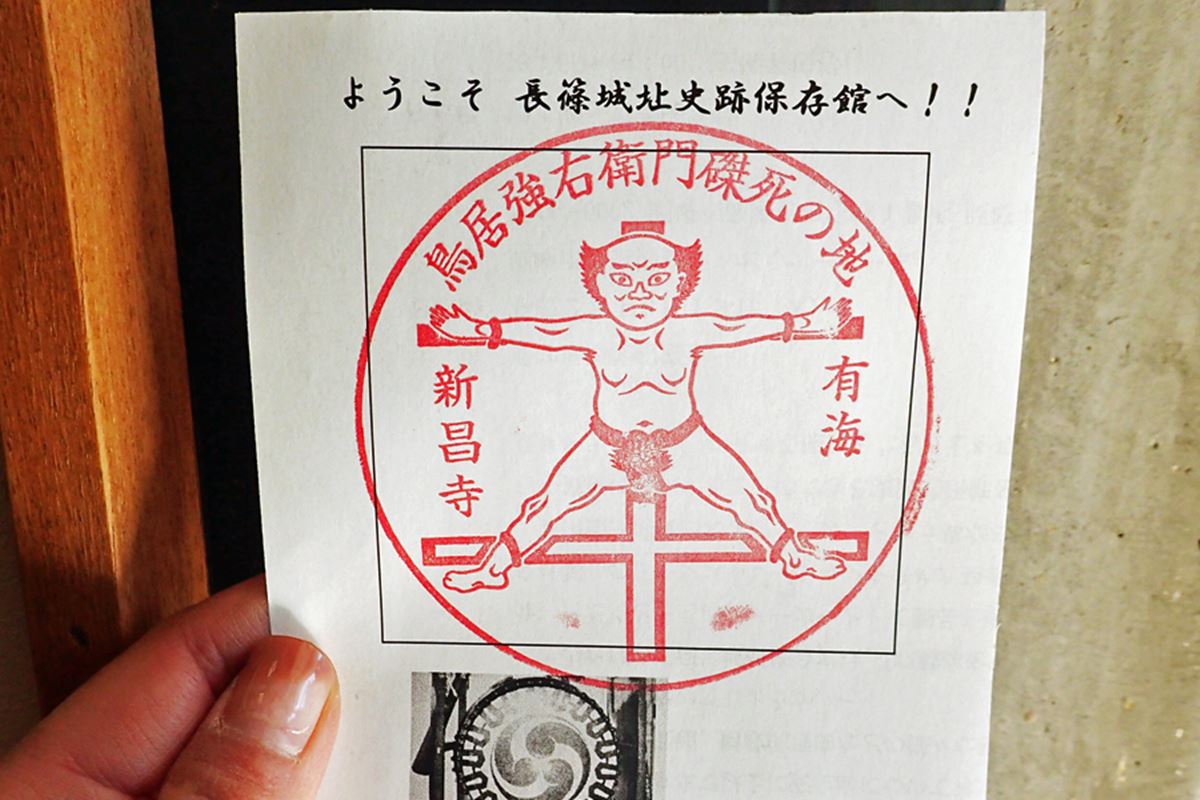 ようこそ 長篠城址史跡保存館へ！！
鳥居強右衛門磔死の地
有海
新昌寺